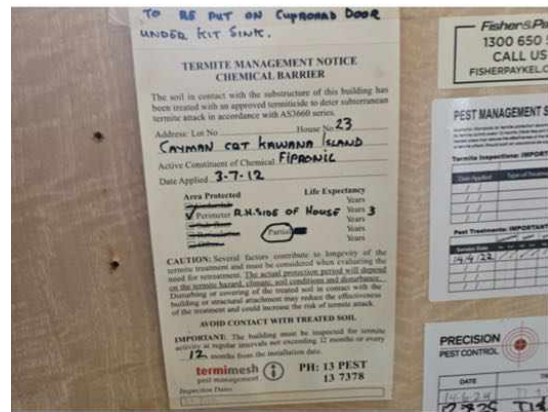 TO BE PUT ON CUPBOARD DOOR
UNDER KIT SINK.
TERMITE MANAGEMENT NOTICE
CHEMICAL BARRIER
The soil in contact with the substructure of this building has
been treated with an approved termiticide to deter subterranean
termite attack in accordance with AS3660 series.
Address: Lot No House No 23
CAYMAN CRT KAWANA ISLAND
Active Constituent of Chemical FIPRONIL
Date Applied 3-7-12
Area Protected Life Expectancy
Years
Perimeter R.H. SIDE OF HOUSE Years 3
Years
Partial Years
Years
CAUTION: Several factors contribute to longevity of the
termite treatment and must be considered when evaluating the
need for retreatment. The actual protection period will depend
on the termite hazard, climate, soil conditions and disturbance.
Disturbing or covering of the treated soil in contact with the
building or structural attachment may reduce the effectiveness
of the treatment and could increase the risk of termite attack.
AVOID CONTACT WITH TREATED SOIL
IMPORTANT: The building must be inspected for termite
activity at regular intervals not exceeding 12 months or every
12 months from the installation date.
termimesh
pest management
PH: 13 PEST
13 7378
Inspection Dates
Fisher&Pa
1300 650
CALL US
FISHERPAYKEL.C
PEST MANAGEMENT S
Termite Inspections: IMPORT
Date Applied Type of Treatm
Pest Treatments: IMPORTANT
Service Date
14.4.22
PRECISION
PEST CONTROL
DATE